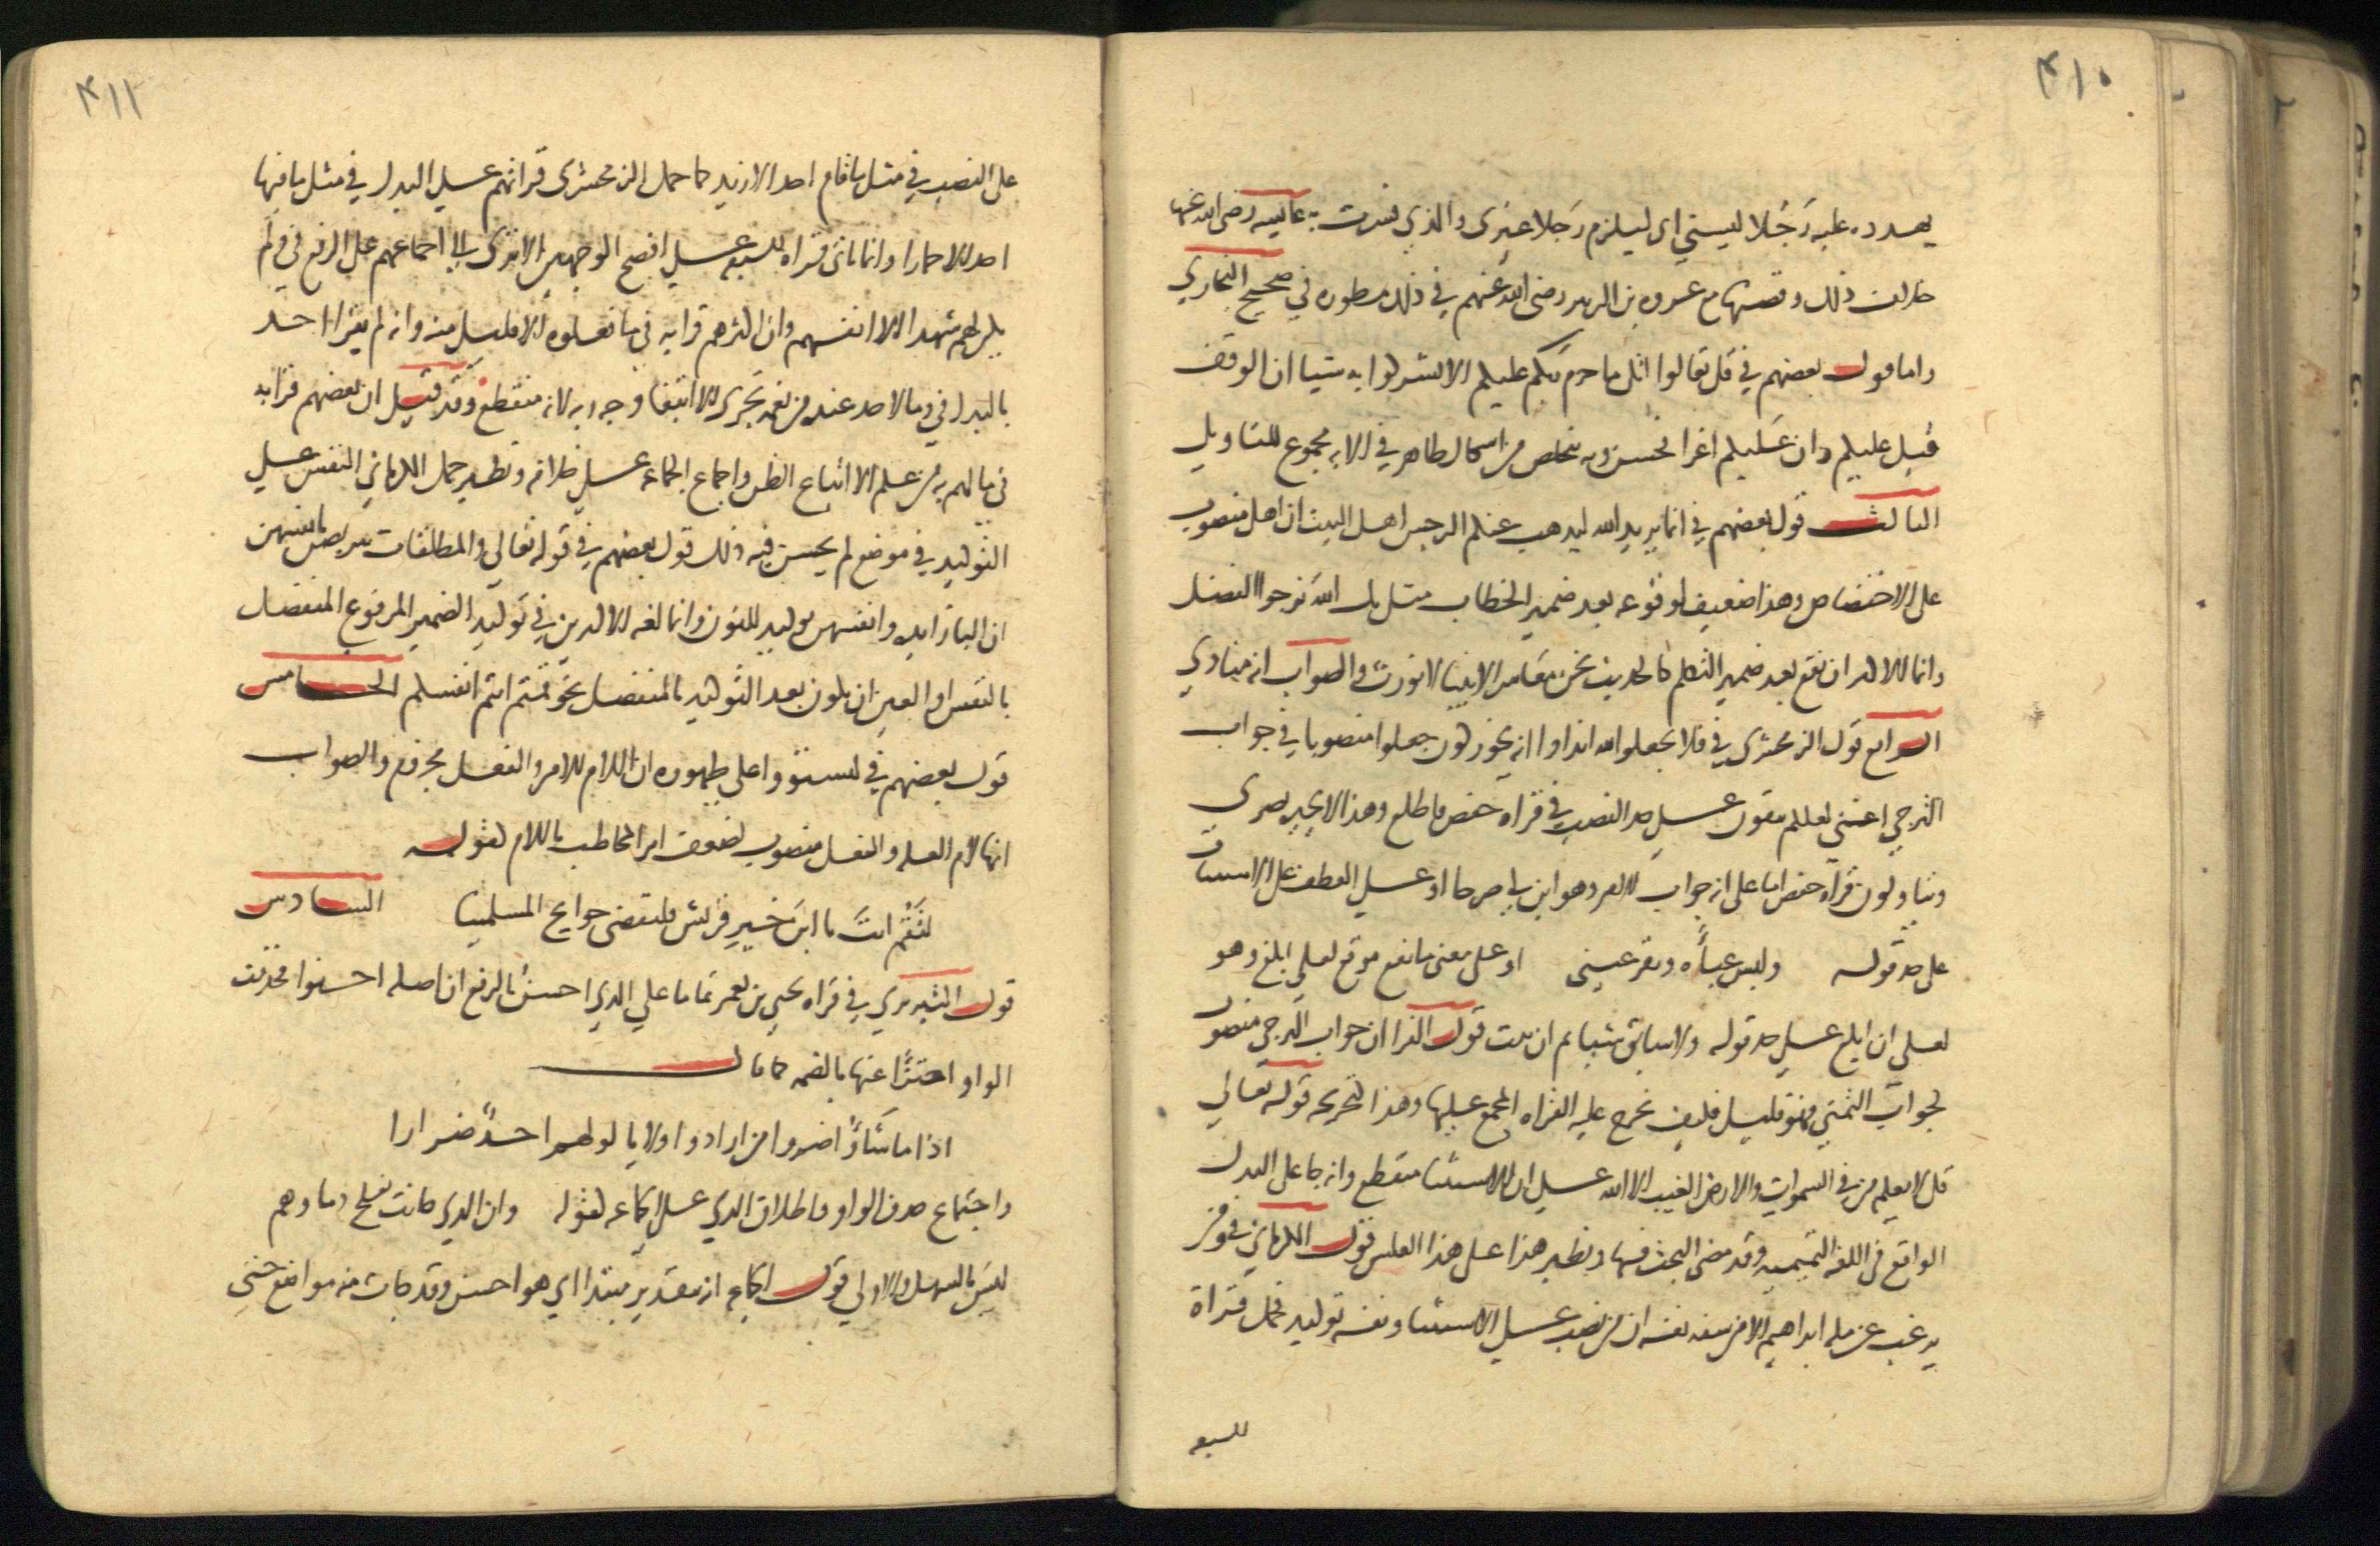 ٤١٠
يهدده عليه رجلا ليسني اى ليلزم رجلا غيرى والذي فسرت به عائشه رضى الله عنها
خلاف ذلك وقصتها مع عروه بن الزبير رضى الله عنهم في ذلك مسطوره في صحيح البخاري
واما قول بعضهم في قل تعالوا اتل ما حرم ربكم عليكم الا تشركوا به شيا ان الوقف
قبل عليكم وان عليكم اغرا فحسن وبه يتخلص من اشكال ظاهر في الايه محوج للتاويل
الثالث قول بعضهم في انما يريد الله ليذهب عنكم الرجس اهل البيت ان اهل منصوب
على الاختصاص وهذا ضعيف لوقوعه بعد ضمير الخطاب مثل بك الله نرجوا الفضل
وانما الاكثر ان يقع بعد ضمير التكلم كالحديث نحن معاشر الانبيا لا نورث والصواب انه منادي
الرابع قول الزمخشرى في فلا تجعلوا لله اندادا انه يجوز كون تجعلوا منصوبا في جواب
الترجي اعني لعلكم تتقون على حد النصب في قراه حفص فاطلع وهذا لا يجيزه بصرى
ويتاولون قراه حفص اما على انه جواب للامر وهو ابن لي صرحا او على العطف على الاسباب
على حد قوله ولبس عباءه وتقر عيني او على معنى ما يقع موقع لعلي ابلغ وهو
لعلى ان ابلغ على حد قوله ولا سابق شيا ثم ان ثبت قول الفرا ان جواب الترجي منصوب
كجواب التمني فهو قليل فكيف تخرج عليه القراه المجمع عليها وهذا كتخريجه قوله تعالى
قل لا يعلم من في السموات والارض الغيب الا الله على ان الاستثنا منقطع وانه جا على البدل
الواقع في اللغه التميميه وقد مضى البحث فيها ونظير هذا على هذا العكس قول الكرماني في ومن
يرغب عن مله ابراهيم الا من سفه نفسه ان من نصب على الاستثنا ونفسه توكيد فحمل قراة
للسبعه
٤١١
على النصب في مثل ما قام احد الا زيد كما حمل الزمخشرى قراتهم على البدل في مثل ما فيها
احد الا حمارا وانما ياتى قراه السبعه على افصح الوجهين الا ترى الى اجماعهم على الرفع في ولم
يكن لهم شهدا الا انفسهم وان اكثرهم قرا به في ما فعلوه الا قليل منهم وانه لم يقرا احد
بالبدل في وما لاحد عنده من نعمه تجزى الا ابتغا وجه ربه لانه منقطع وقد قيل ان بعضهم قرا به
في ما لهم به من علم الا اتباع الظن واجماع الجماعه على خلافه ونظير حمل الكرماني النفس على
التوكيد في موضع لم يحسن فيه ذلك قول بعضهم في قوله تعالى والمطلقات يتربصن بانفسهن
ان البا زايده وانفسهن توكيد للنون وانما لغه الاكثرين في توكيد الضمير المرفوع المتصل
بالنفس او العين ان يكون بعد التوكيد بالمنفصل نحو قمتم انتم انفسكم الخامس
قول بعضهم في لتستووا على ظهوره ان اللام للامر والفعل مجزوم والصواب
انها لام العله والفعل منصوب لضعف امر المخاطب باللام لقوله
لتقم انت يا ابن خير قريش فلتقضى حوايج المسلمينا السادس
قول التبريزي في قراه يحيى بن يعمر تماما على الذي احسن بالرفع ان اصله احسنوا فحذفت
الواو اجتزاً عنها بالضمه كما قال
اذا ما شاؤا ضروا من ارادوا ولا يالوا لهم احدٌ ضرارا
واجتماع حذف الواو واطلاق الذي على الجماعه لقوله وان الذي حانت بفلج دماوهم
ليس بالسهل والاولى قول الجماعه انه بتقدير مبتدا اي هو احسن وقد جات منه مواضع حتى